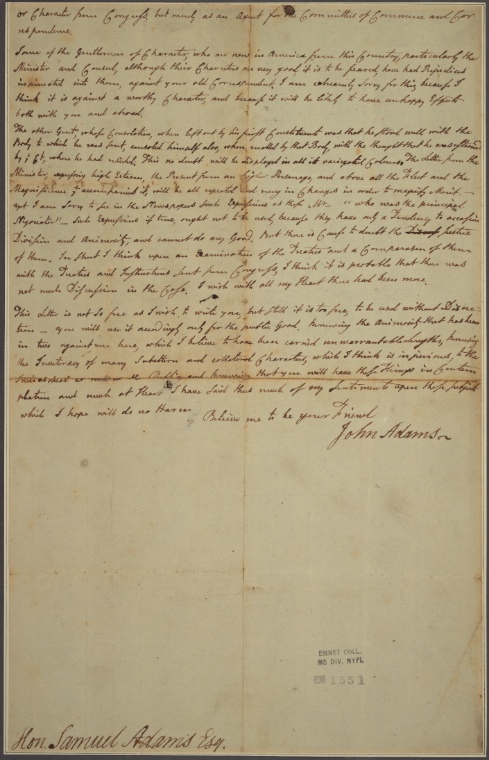 or Character from Congress, but merely as an Agent for the Committees of Commerce and Cor
respondence.
Some of the Gentlemen of Character, who are now in America from this Country, particularly the
Minister and Consul, although their Characters are very good it is to be feared, have had Prejudices
insinuated into them, against your old Correspondent, I am extreamly Sorry for this, because I
think it is against a worthy Character, and because it will be likely to have unhappy Effects
both with you and abroad.
The other Gent. whose Consolation, when left out by his first Constituents was that he stood well with the
Body to which he was sent, consoled himself also, when recalled by that Body, with the thought that he was esteemed
by Ct, where he had resided, This no doubt will be displayed in all its Colours. The Letter from the
Minister, expressing high Esteem, the Present from an higher Personage, and above all the Fleet and the
Magnificence to accompanied it, will be all repeated and rung in Changes in order to magnify Merit.—
I am Sorry to see in the Newspapers Such Expressions as these Mr. "who was the principal
Negotiator"— Such Expressions if true, ought not to be used, because they have only a Tendency to occasion
Division and Animosity, and cannot do any Good. But there is Cause to doubt the Justice
of them. In short I think upon an Examination of the Treaties and a Comparison of them
with the Treaties and Instructions Sent from Congress, I think it is probable that there was
not much Discussion in the Case. I wish with all my Heart there had been more.
This Letter is not so free as I wish, to write you, but still it is too free, to be used without Discre-
tion — you will use it accordingly only for the public Good. knowing the Animosity that has been
in two against one here, which I believe to have been carried unwarrantable Lengths, knowing
the Inveteracy of many Subaltern and collateral Characters, which I think is injurious, to the
and knowing that you will have these Things in Contem-
plation and much at Heart I have said thus much of my Sentiments upon these Subjects
which I hope will do no Harm.
Believe me to be your Friend
John Adams
EMMET COLL.
MS DIV. NYPL
EM 1331
Hon. Samuel Adams Esq.